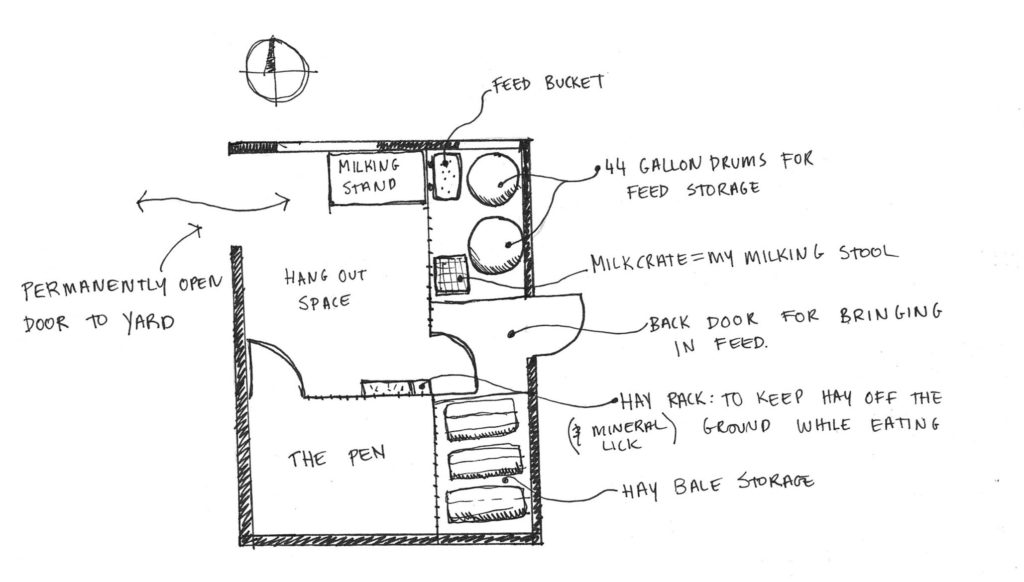 FEED BUCKET
MILKING
STAND
44 GALLON DRUMS FOR
FEED STORAGE
PERMANENTLY OPEN
DOOR TO YARD
HANG OUT
SPACE
MILKCRATE=MY MILKING STOOL
BACK DOOR FOR BRINGING
IN FEED.
HAY RACK: TO KEEP HAY OFF THE
(& MINERAL LICK) GROUND WHILE EATING
THE PEN
HAY BALE STORAGE